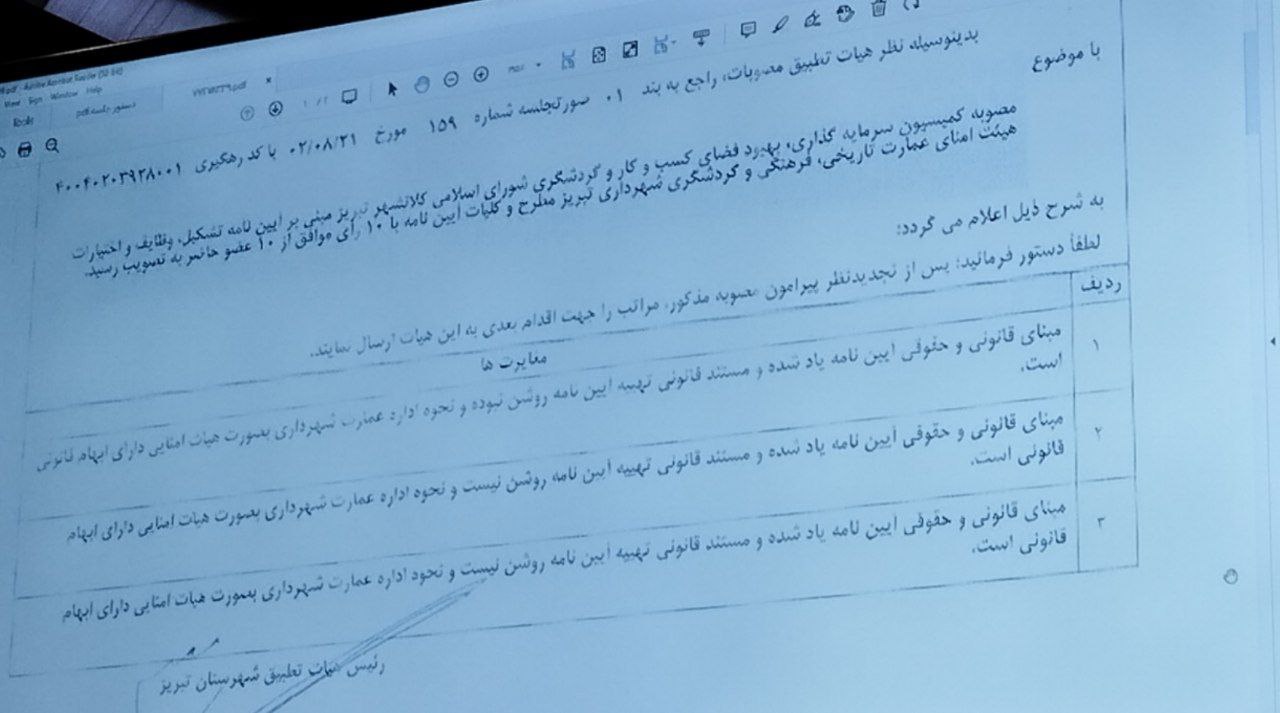 Adobe Acrobat Reader (32-bit)
View Sign Window Help
Tools
دستور جلسه.pdf
بدینوسیله نظر هیات تطبیق مصوبات، راجع به بند ۰۱ صورتجلسه شماره ۱۵۹ مورخ ۰۲/۰۸/۲۱ با کد رهگیری ۴۰۰۴۰۲۰۳۹۲۸۰۰۱
با موضوع
مصوبه کمیسیون سرمایه گذاری، بهبود فضای کسب و کار و گردشگری شورای اسلامی کلانشهر تبریز مبنی بر آیین نامه تشکیل، وظایف و اختیارات
هیئت امنای عمارت تاریخی، فرهنگی و گردشگری شهرداری تبریز مطرح و کلیات آیین نامه با ۱۰ رأی موافق از ۱۰ عضو حاضر به تصویب رسید.
به شرح ذیل اعلام می گردد:
لطفاً دستور فرمائید: پس از تجدیدنظر پیرامون مصوبه مذکور، مراتب را جهت اقدام بعدی به این هیات ارسال نمایند.
ردیف مغایرت ها
۱ مبنای قانونی و حقوقی آیین نامه یاد شده و مستند قانونی تهییه آیین نامه روشن نبوده و نحوه اداره عمارت شهرداری بصورت هیات امنایی دارای ابهام قانونی
است.
۲ مبنای قانونی و حقوقی آیین نامه یاد شده و مستند قانونی تهییه آیین نامه روشن نیست و نحوه اداره عمارت شهرداری بصورت هیات امنایی دارای ابهام
قانونی است.
۳ مبنای قانونی و حقوقی آیین نامه یاد شده و مستند قانونی تهییه آیین نامه روشن نیست و نحوه اداره عمارت شهرداری بصورت هیات امنایی دارای ابهام
قانونی است.
رئیس هیات تطبیق شهرستان تبریز